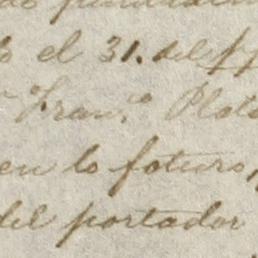 el 31. del pp
Franco Plot
en lo foturo,
del portador